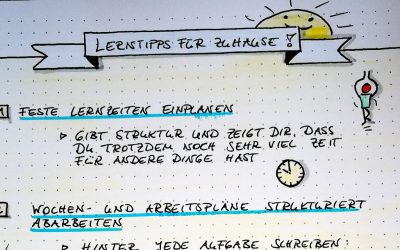 LERNTIPPS FÜR ZUHAUSE!
1 FESTE LERNZEITEN EINPLANEN
▹ GIBT STRUKTUR UND ZEIGT DIR, DASS
DU TROTZDEM NOCH SEHR VIEL ZEIT
FÜR ANDERE DINGE HAST
2 WOCHEN- UND ARBEITSPLÄNE STRUKTURIERT
ABARBEITEN
▹ HINTER JEDE AUFGABE SCHREIBEN